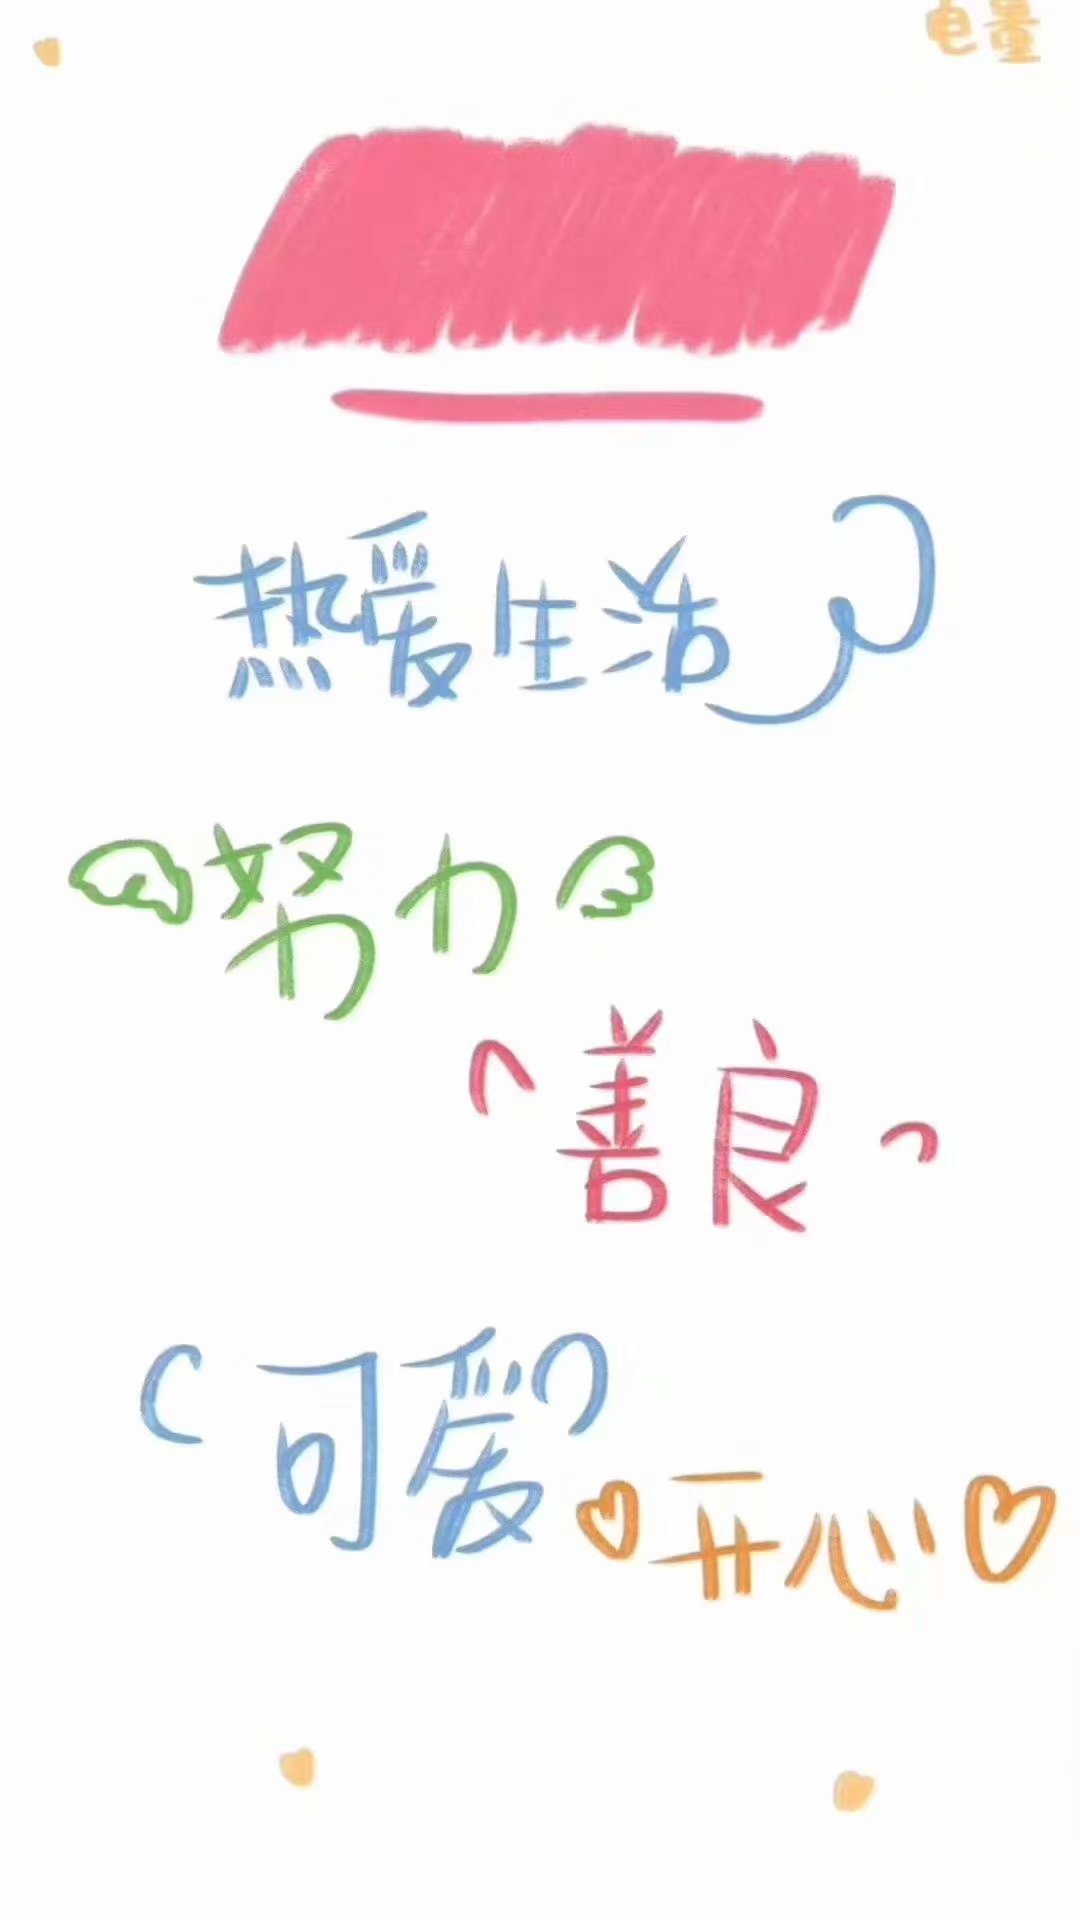 电量
热爱生活
努力
善良
可爱
开心